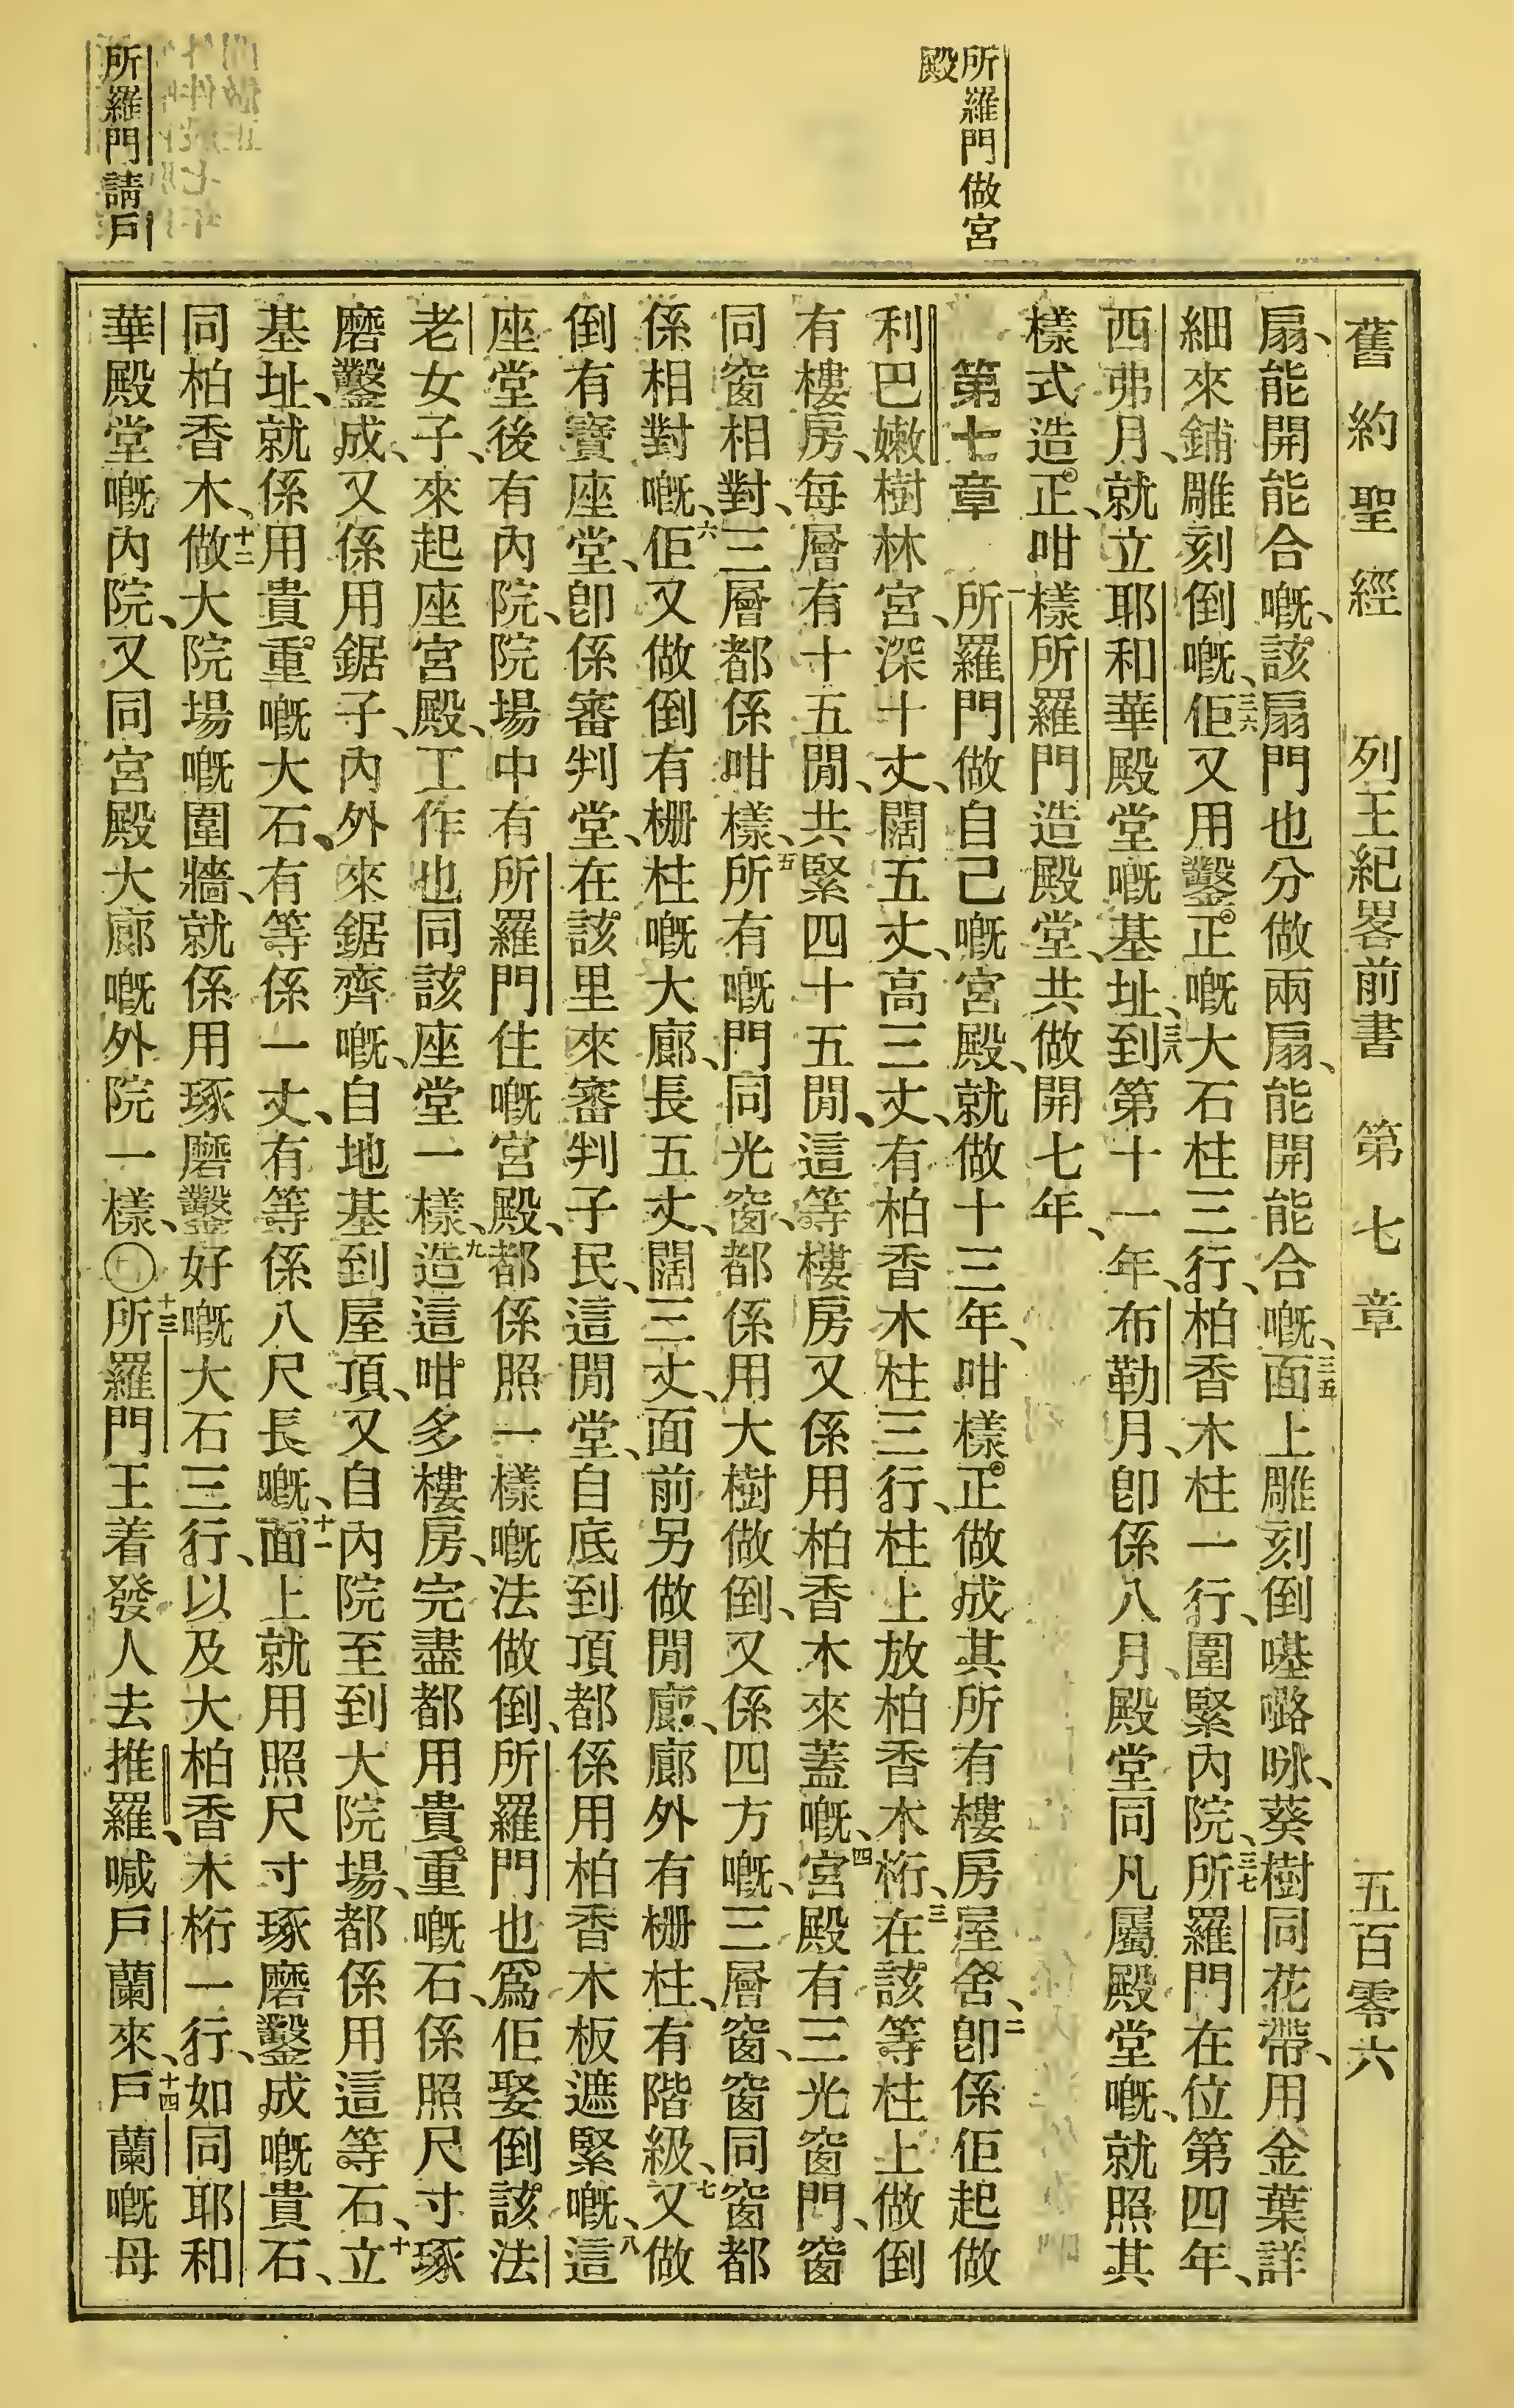 舊約聖經 列王紀畧前書 第七章 五百零六
所羅門做宮
殿
所羅門請戶
扇、能開能合嘅、該扇門也分做兩扇、能開能合嘅、三五面上雕刻倒𠸄嚕咏、葵樹同花帶、用金葉詳
細來鋪雕刻倒嘅、三六佢又用鑿正嘅大石柱三行、柏香木柱一行、圍緊內院、三七所羅門在位第四年、
西弗月、就立耶和華殿堂嘅基址、三八到第十一年、布勒月、卽係八月、殿堂同凡屬殿堂嘅、就照其
樣式造正、咁樣所羅門造殿堂、共做開七年、
第七章 一所羅門做自己嘅宮殿、就做十三年、咁樣正做成其所有樓房屋舍、二卽係佢起做
利巴嫩樹林宮、深十丈、闊五丈、高三丈、有柏香木柱三行、柱上放柏香木桁、三在該等柱上做倒
有樓房、每層有十五閒、共緊四十五閒、這等樓房又係用柏香木來蓋嘅、四宮殿有三光窗門、窗
同窗相對、三層都係咁樣、五所有嘅門同光窗、都係用大樹做倒、又係四方嘅、三層窗、窗同窗都
係相對嘅、六佢又做倒有柵柱嘅大廊、長五丈、闊三丈、面前另做閒廊、廊外有柵柱、有階級、七又做
倒有寶座堂、卽係審判堂、在該里來審判子民、這閒堂、自底到頂都係用柏香木板遮緊嘅、八這
座堂後有內院、院場中有所羅門住嘅宮殿、都係照一樣嘅法做倒、所羅門也爲佢娶倒該法
老女子、來起座宮殿、工作也同該座堂一樣、九造這咁多樓房、完盡都用貴重嘅石、係照尺寸琢
磨鑿成、又係用鋸子、內外來鋸齊嘅、自地基到屋頂、又自內院至到大院場、都係用這等石、十立
基址、就係用貴重嘅大石、有等係一丈、有等係八尺長嘅、十一面上就用照尺寸琢磨鑿成嘅貴石、
同柏香木、十二做大院場嘅圍牆、就係用琢磨鑿好嘅大石三行、以及大柏香木桁一行、如同耶和
華殿堂嘅內院、又同宮殿大廊嘅外院一樣、〇十三所羅門王着發人去推羅、喊戶蘭來、十四戶蘭嘅母